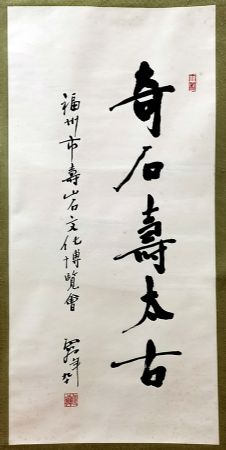 奇石壽太古
福州市壽山石文化博覽會